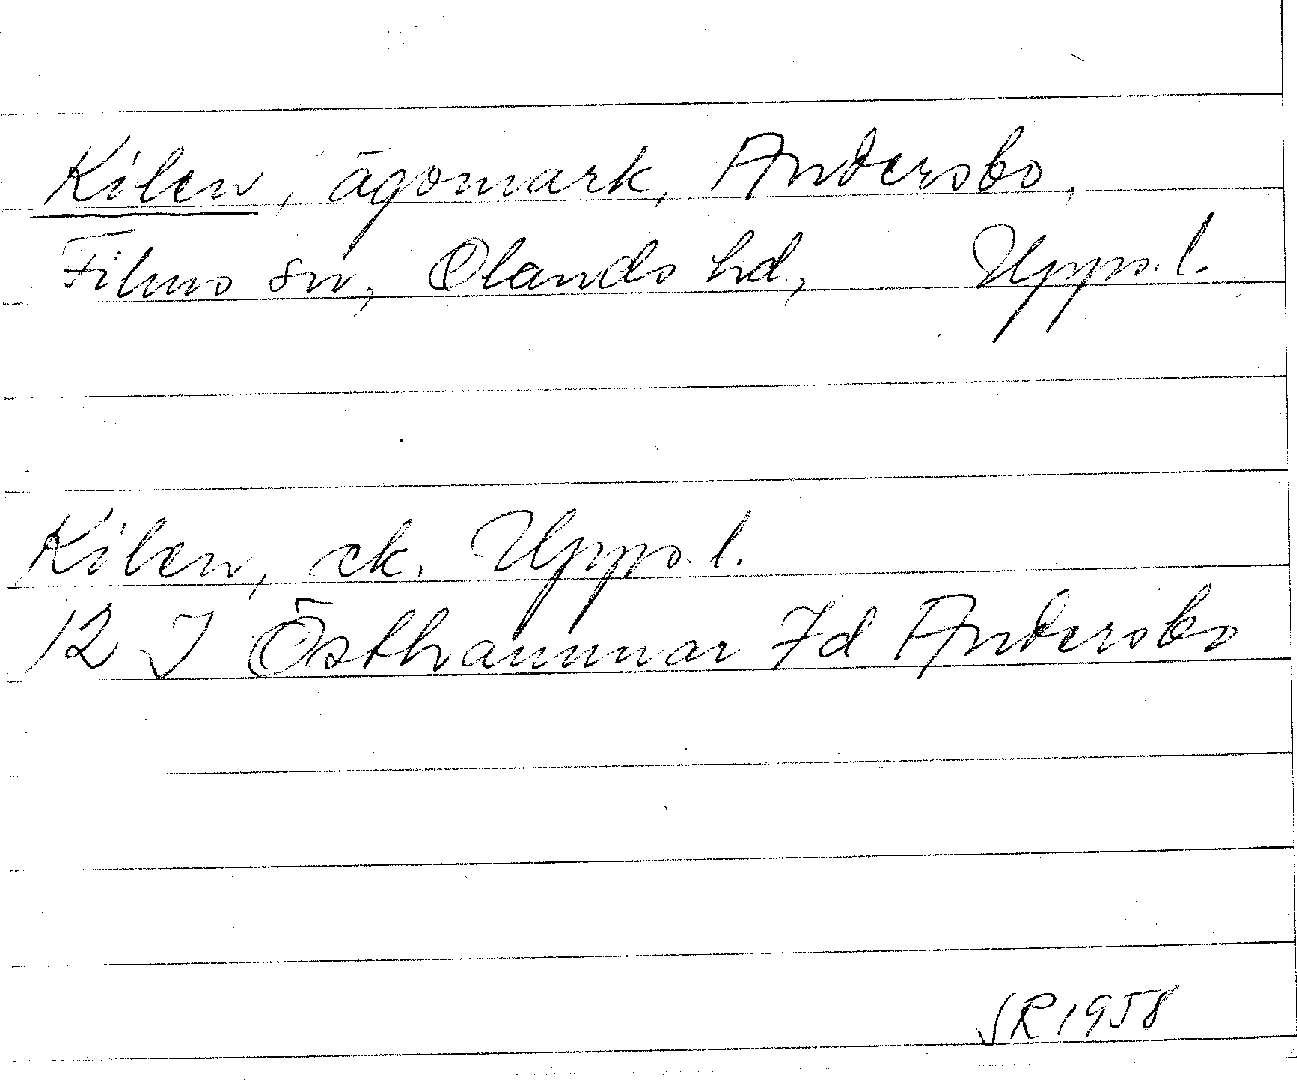 Kilen, ägomark, Andersbo,
Films sn, Olands hd, Upps.l.
Kilen, ek. Upps.l.
12 I Östhammar 7d Andersbo
SR 1958